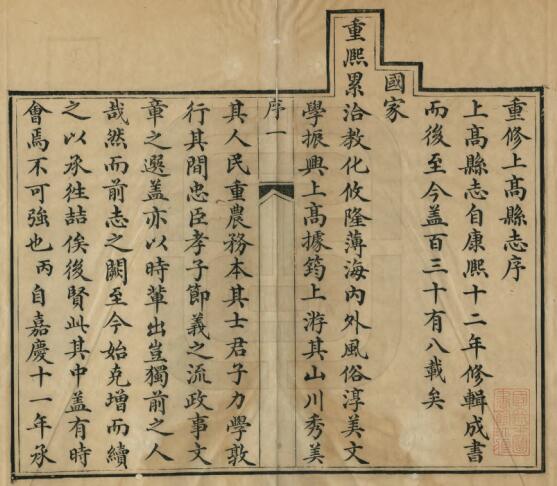 重修上髙縣志序
上髙縣志自康熙十二年修輯成書
而後至今盖百三十有八載矣
國家
重熙累洽教化攸隆薄海內外風俗淳美文
學振興上髙據筠上游其山川秀美
序一
其人民重農務本其士君子力學敦
行其間忠臣孝子節義之流政事文
章之選盖亦以時輩出豈獨前之人
哉然而前志之闕至今始克增而續
之以承徃喆俟後賢此其中盖有時
會焉不可強也丙自嘉慶十一年承